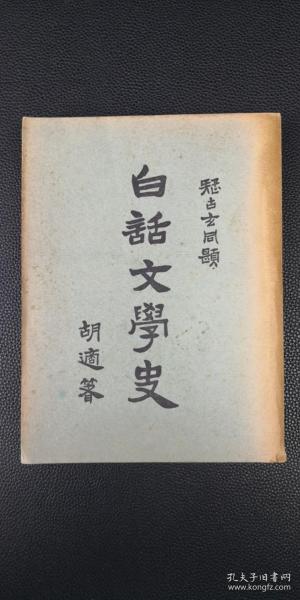 疑古玄同題
白話文學史
胡適著
孔夫子旧书网
www.kongfz.com